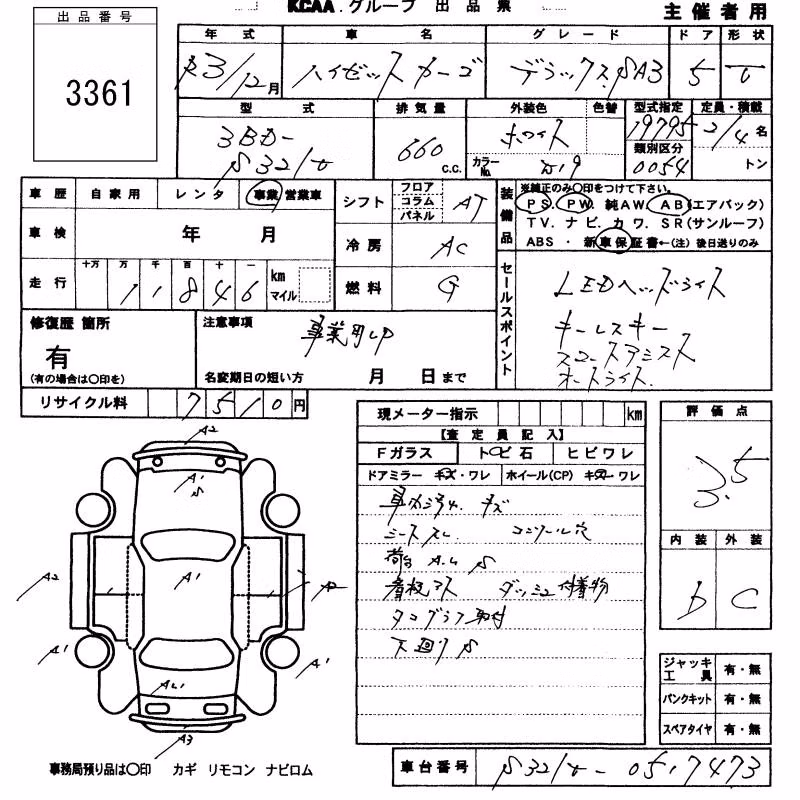 KCAA.グループ 出品票
主催者用
出品番号
3361
年式 車名 グレード ドア 形状
R3/12月 ハイゼットカーゴ デラックスSA3 5 V
型式 排気量 外装色 色替 型式指定 定員・積載
3BD-
S321V
660 C.C.
ホワイト
カラーNo. W19
19795
類別区分
0054
2/4 名
トン
車歴 自家用 レンタ 事業 営業車
シフト フロア コラム パネル AT
装備品
※純正のみ〇印をつけて下さい。
PS. PW. 純AW. AB(エアバック)
TV. ナビ. カワ. SR(サンルーフ)
ABS ・ 新車保証書←(注) 後日送りのみ
車検 年 月
冷房 AC
走行 十万 万 千 百 十 一 km マイル
11846
燃料 G
セールスポイント
LEDヘッドライト
キーレスキー
スマートアシスト
オートライト.
修復歴 箇所
有
(有の場合は〇印を)
注意事項 事業用UP
名変期日の短い方 月 日まで
リサイクル料 7510円
現メーター指示 km
【査定員記入】
Fガラス トビ石 ヒビワレ
ドアミラー キズ・ワレ ホイール(CP) キズ・ワレ
車内汚れ. キズ
シートスレ コンソール穴
荷台 A.U S
看板アト ダッシュ付着物
タコグラフ取付
下廻り S
評価点
3.5
内装 外装
b C
ジャッキ工具 有・無
パンクキット 有・無
スペアタイヤ 有・無
A2
A1
S
A1
A2
A2
A1
A1
AU1
A3
事務局預り品は〇印 カギ リモコン ナビロム
車台番号 S321V-0517473